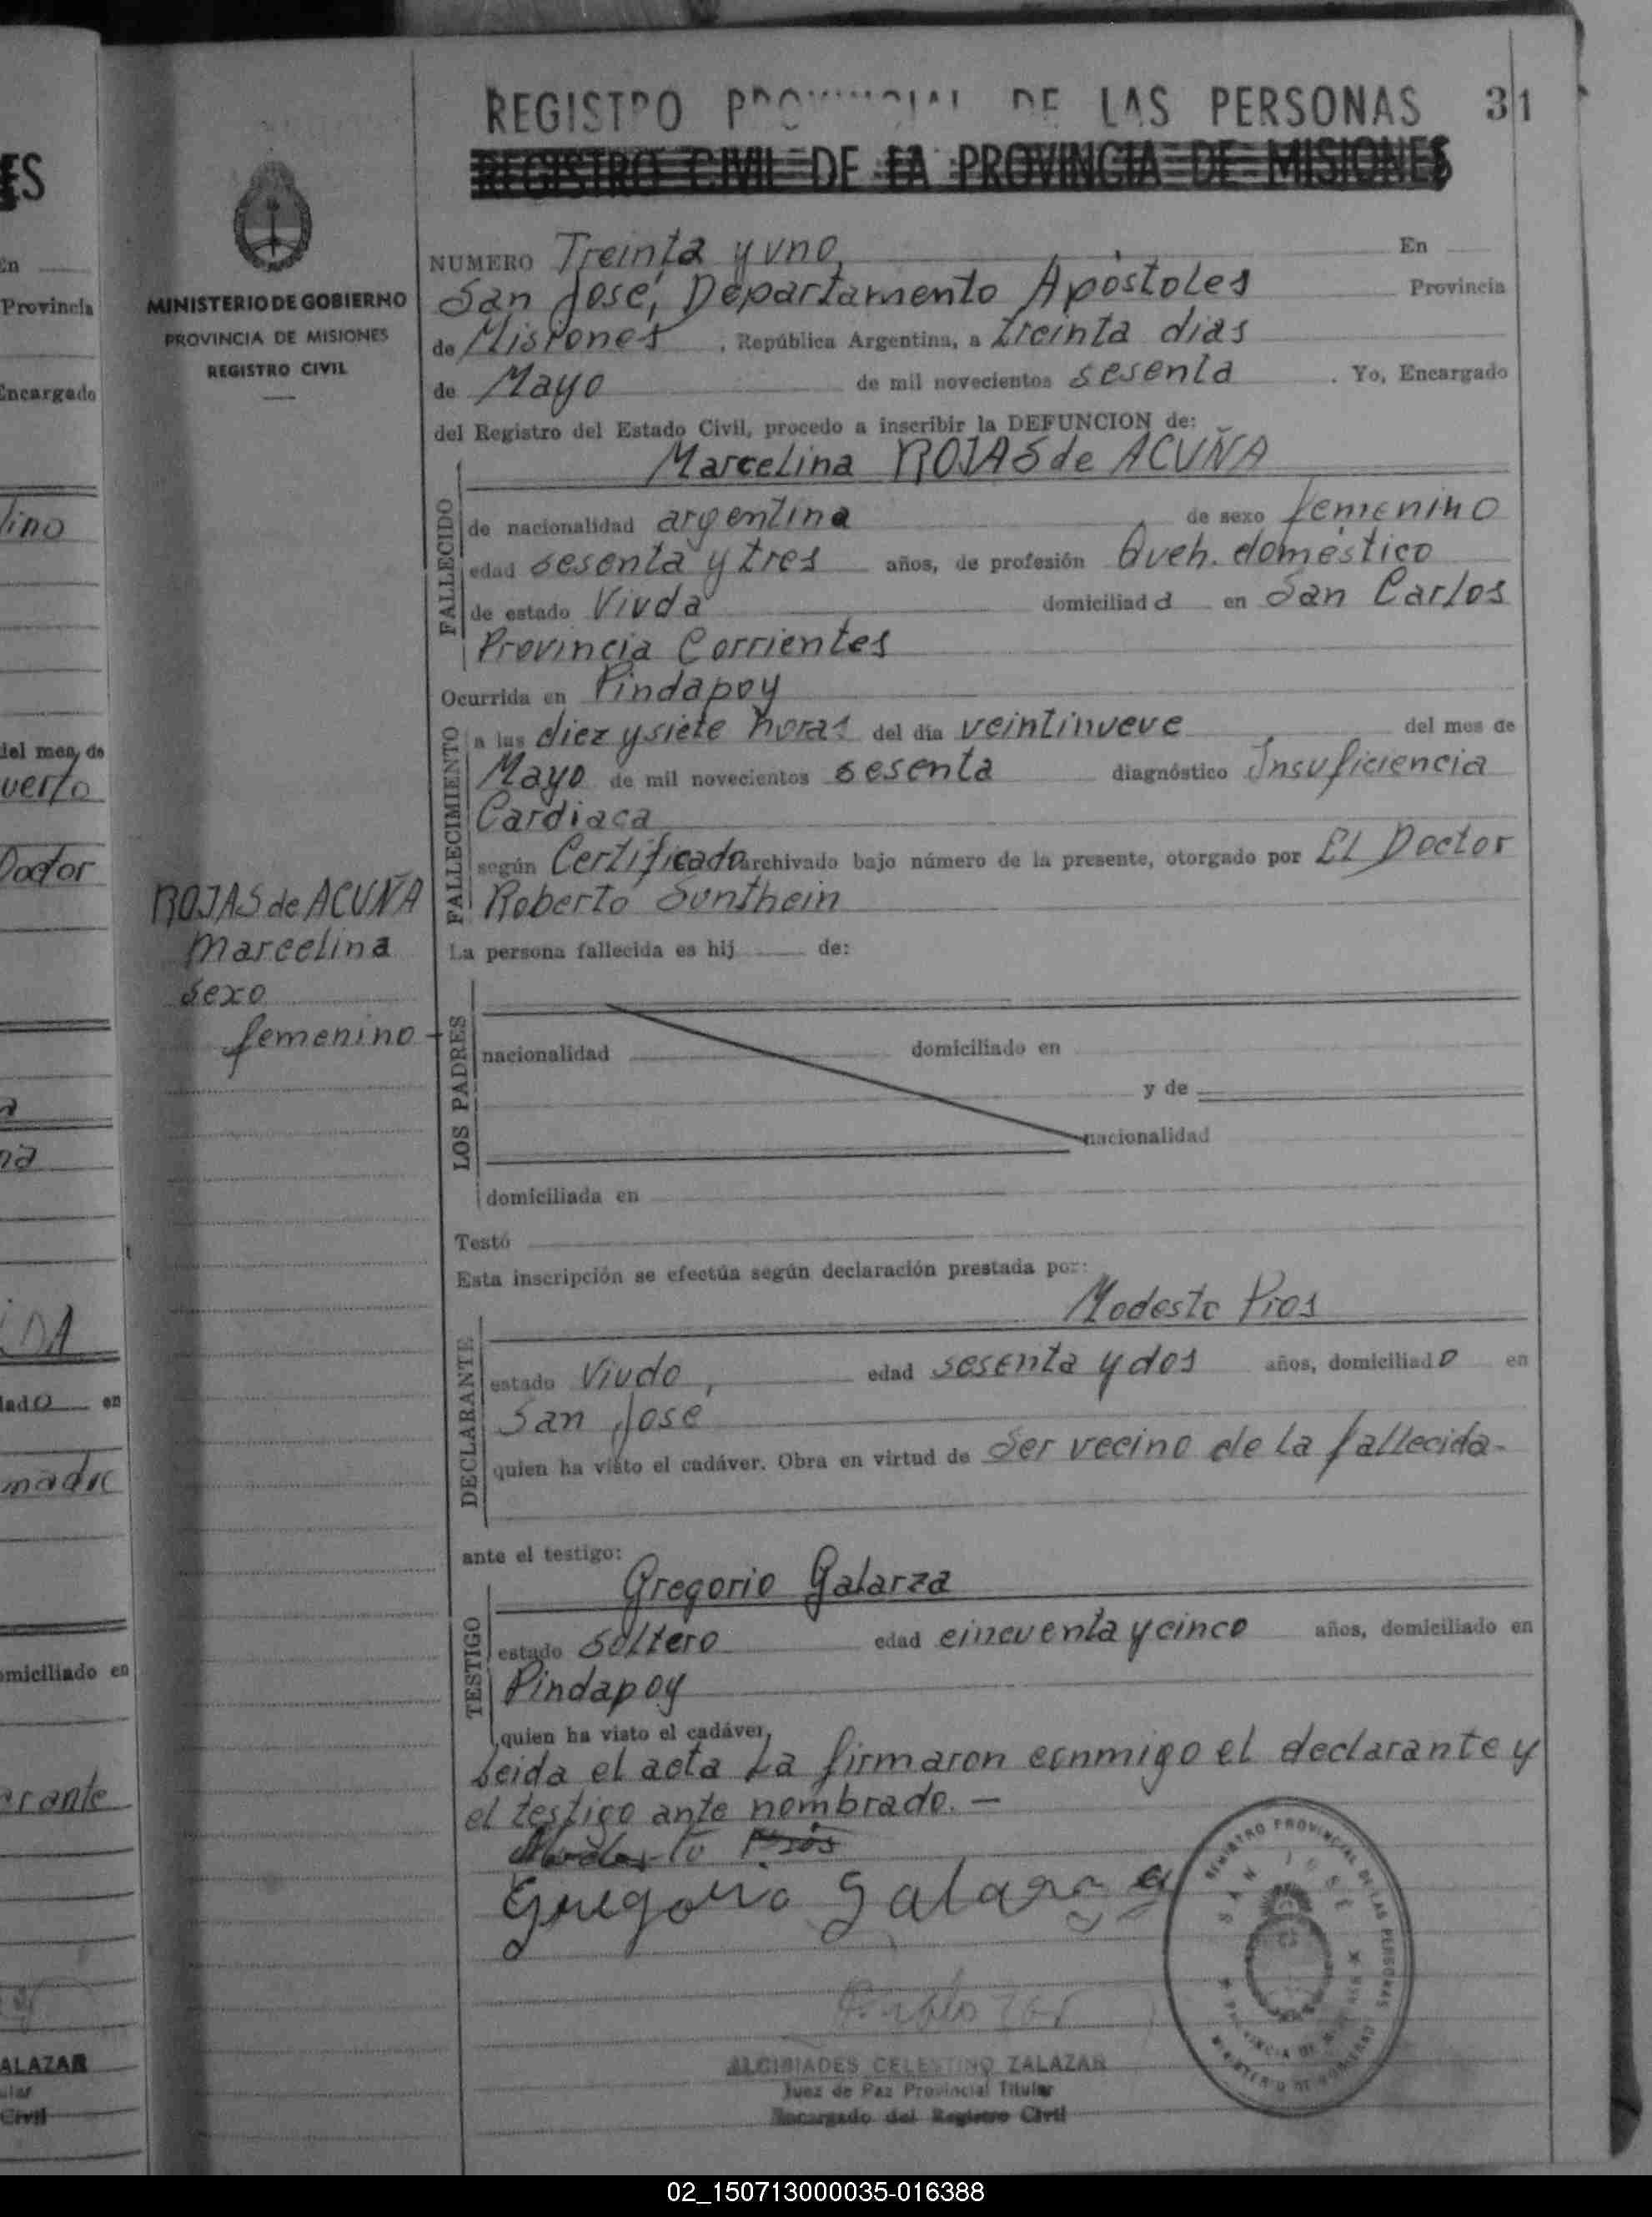 REGISTRO PROVINCIAL DE LAS PERSONAS 31
REGISTRO CIVIL DE LA PROVINCIA DE MISIONES
MINISTERIO DE GOBIERNO
PROVINCIA DE MISIONES
REGISTRO CIVIL
NUMERO Treinta y uno En
San José, Departamento Apóstoles Provincia
de Misiones, República Argentina, a treinta dias
de Mayo de mil novecientos sesenta. Yo, Encargado
del Registro del Estado Civil, procedo a inscribir la DEFUNCION de:
Marcelina ROJAS de ACUÑA
FALLECIDO
de nacionalidad argentina de sexo femenino
edad sesenta y tres años, de profesión Queh. doméstico
de estado Viuda domiciliad a en San Carlos
Provincia Corrientes
Ocurrida en Pindapoy
FALLECIMIENTO
a las diez y siete horas del día veintinueve del mes de
Mayo de mil novecientos sesenta diagnóstico Insuficiencia
Cardiaca
según Certificado archivado bajo número de la presente, otorgado por El Doctor
Roberto Sunthein
ROJAS de ACUÑA
Marcelina
sexo
femenino
La persona fallecida es hij de:
LOS PADRES
nacionalidad domiciliado en
y de
nacionalidad
domiciliada en
Testó
Esta inscripción se efectúa según declaración prestada por:
Modesto Pios
DECLARANTE
estado Viudo, edad sesenta y dos años, domiciliado en
San José
quien ha visto el cadáver. Obra en virtud de ser vecino de la fallecida-
ante el testigo:
Gregorio Galarza
TESTIGO
estado soltero edad cincuenta y cinco años, domiciliado en
Pindapoy
quien ha visto el cadáver,
Leida el acta La firmaron conmigo el declarante y
el testigo ante nombrado. —
Modesto Pios
Gregorio Galarza
REGISTRO PROVINCIAL DE LAS PERSONAS
SAN JOSE
PROVINCIA DE MISIONES
MINISTERIO DE GOBIERNO
ALCIBIADES CELESTINO ZALAZAR
Juez de Paz Provincial Titular
Encargado del Registro Civil
ES
En
Provincia
Encargado
lino
del mes de
uerto
Doctor
a
na
IDA
lado en
madre
omiciliado en
arante
ALAZAR
Civil
02_150713000035-016388